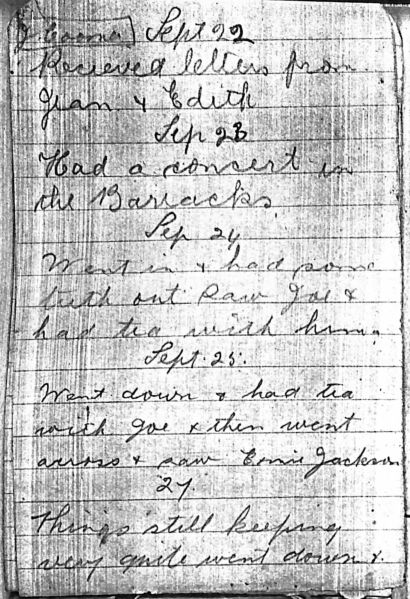 Sept 22
Recieved letters from
Jean & Edith
Sep 23
Had a concert in
the Barracks
Sep 24
Went in & had some
teeth out Saw Joe &
had tea with him.
Sept. 25.
Went down & had tea
with Joe & then went
across & saw Ernie Jackson
27.
Things still keeping
very quite went down &